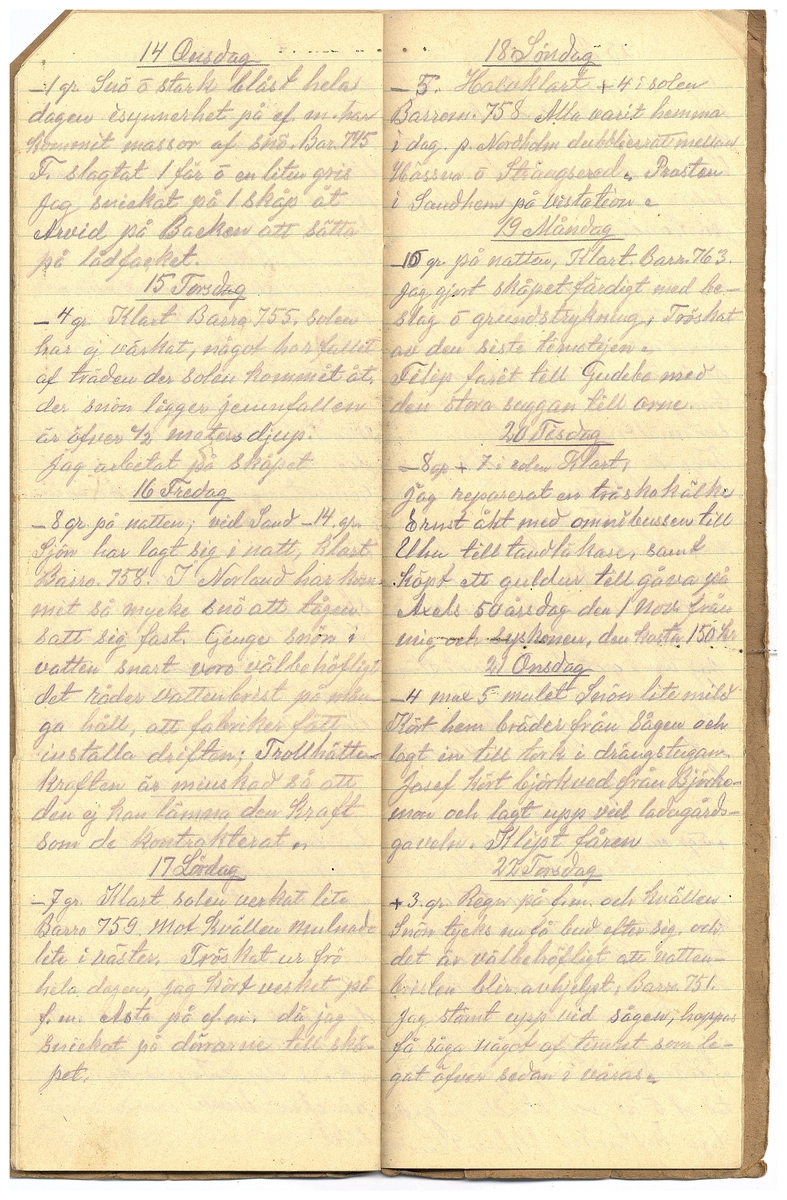 14 Onsdag
-1 gr. Snö ö stark blåst hela
dagen isynnerhet på ef. m. har
kommit massor af snö. Bar. 745
F. slagtat 1 får ö en liten gris
Jag snickat på 1 skåp åt
Arvid på Backen att sätta
på lådfacket.
15 Torsdag
-4 gr. Klart Barro 755. solen
har ej värkat, något har fallet
af träden der solen kommit åt,
der snön ligger jemnfallen
är öfver 1/2 meters djup.
Jag arbetat på skåpet
16 Fredag
-8 gr. på natten; vid Sand -14. gr.
Sjön har lagt sig i natt, Klart
Barro. 758. I Norland har kom-
met så mycke snö att tågen
satt sig fast. Genge snön i
vatten snart voro välbehöfligt
det råder vattenbrist på mån-
ga håll, att fabriker fått
inställa driften; Trollhätte-
kraften är minskad så att
den ej kan lämna den kraft
som de kontrakterat.
17 Lördag
-7 gr. Klart solen verkat lite
Barro 759. Mot kvällen mulnade
lite i väster. Tröskat ur frö
hela dagen, jag kört verket på
f.m. Asta på ef.m. då jag
snickat på dörrarne till skå-
pet.
18 Söndag
-5. Halvklart +4 i solen
Barrom. 758 Alla varit hemma
i dag. p. Nordholm dubblierat mellan
Hössna ö Strängsered. Prosten
i Sandhem på vistation.
19 Måndag
-10 gr. på natten, Klart. Barr. 763.
Jag gjort skåpet färdigt med be-
slag ö grundstrykning, Tröskat
av den siste timotejen.
Filip farit till Gudebo med
den stora suggan till orne.
20 Tisdag
-8 gr + 7 i solen Klart,
Jag reparerat en träskokälke
Ernst åkt med omnibussen till
Uhn till tandläkare, samt
köpt ett guldur till gåva på
Axels 50 årsdag den 1 Nov. från
mig och syskonen, den kosta 150 kr
21 Onsdag
-4 max 5 mulet Snön lite mild
Kört hem bräder från Sågen och
lagt in till tork i drängstugan.
Josef kört björkved från Björko-
mon och lagt upp vid ladugårds-
gaveln. Klipt fåren
22 Torsdag
+3. gr. Regn på f.m. och kvällen
Snön tycks nu få bud efter sig, och
det är välbehöfligt att vatten-
bristen blir avhjelpt, Barr. 751.
Jag stämt upp vid sågen, hoppas
få såga något af timret som le-
gat öfver sedan i våras.